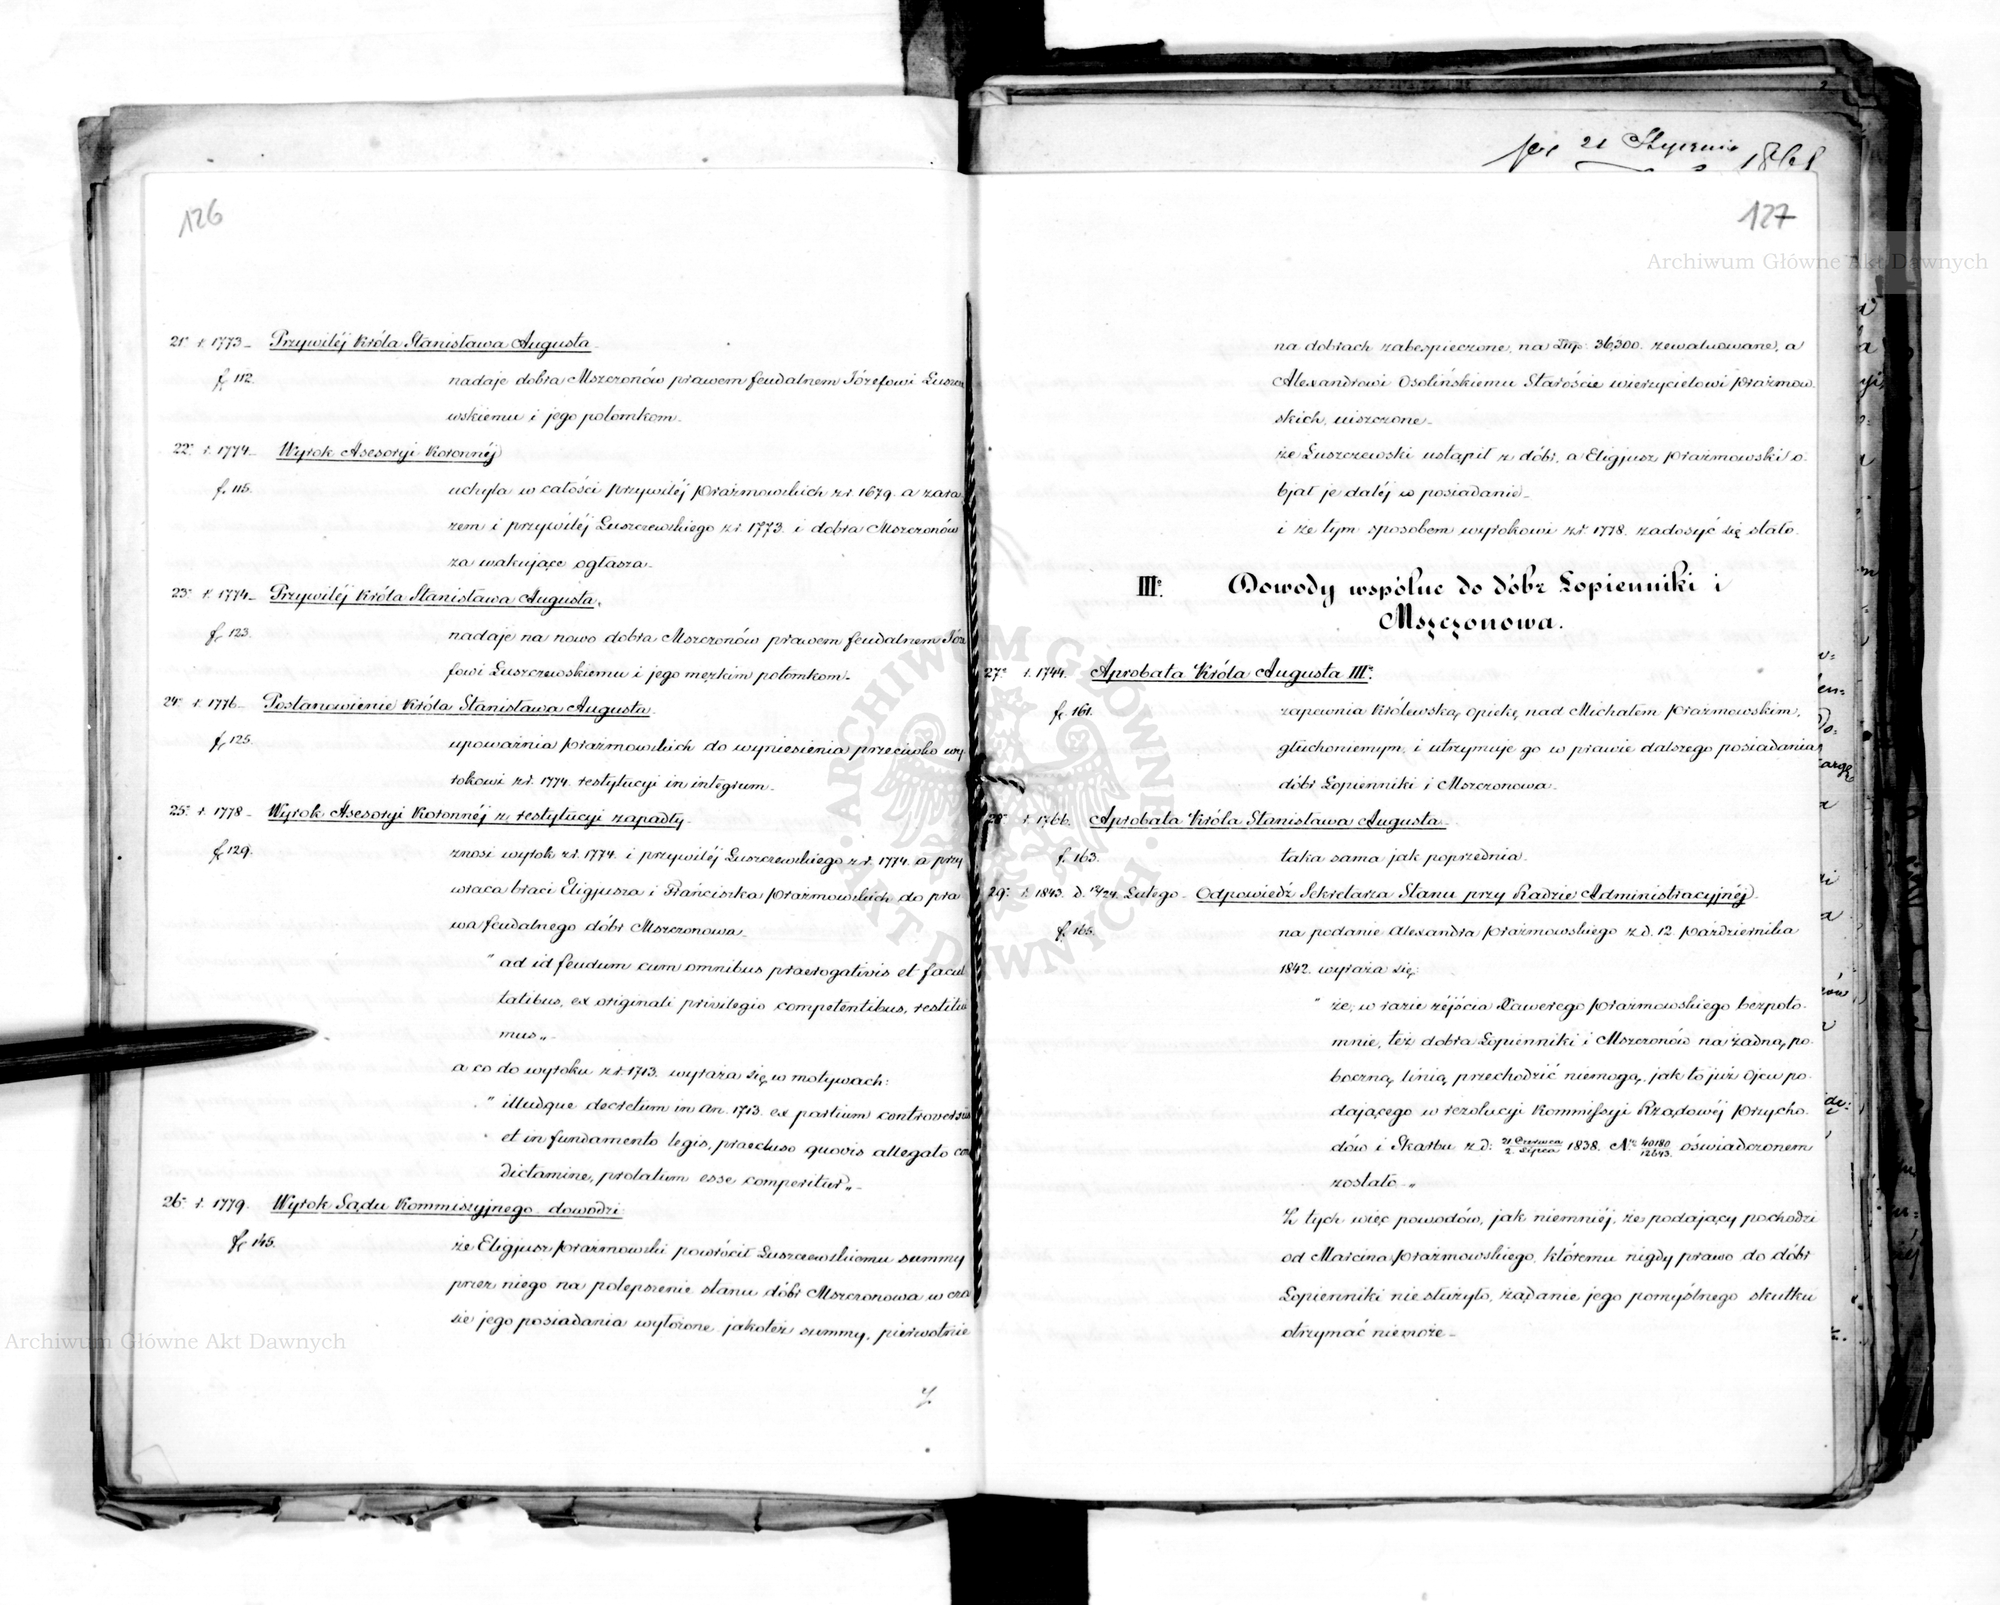 126
21. r. 1773_ Przywiléj Króla Stanisława Augusta_
f. 112. nadaje dobra Mszczonów prawem feudalnem Józefowi Łuszcze
wskiemu i jego potomkom_
22. r. 1774_ Wyrok Asesoryi Koronnéj
f. 115. uchyla w całości przywiléj Prażmowskich z r. 1679. a zara
zem i przywiléj Łuszczewskiego z r. 1773. i dobra Mszczonów
za wakujące ogłasza_
23. r. 1774_ Przywiléj Króla Stanisława Augusta,
f. 123. nadaje na nowo dobra Mszczonów prawem feudalnem Józe
fowi Łuszczewskiemu i jego męzkim potomkom_
24. r. 1776_ Postanowienie Króla Stanisława Augusta_
f. 125. upoważnia Prażmowskich do wyniesienia przeciwko wy
rokowi z r. 1774. restytucyi in integrum_
25. r. 1778_ Wyrok Asesoryi Koronnéj z restytucyi zapadły_
f. 129. znosi wyrok z r. 1774. i przywiléj Łuszczewskiego z r. 1774. a przy
wraca braci Eligjusza i Franciszka Prażmowskich do pra
wa feudalnego dóbr Mszczonowa_
" ad id feudum cum omnibus praerogativis et facul
tatibus, ex originali privilegio competentibus, restitui
mus„_
a co do wyroku z r. 1713. wyraża się w motywach:
" illudque decretum in an. 1713. ex partium controversiis
et in fundamento legis, praecluso quovis allegato con
dictamine, prolatum esse comperitur„_
26. r. 1779. Wyrok Sądu Kommissyjnego dowodzi:
f. 145. że Eligjusz Prażmowski powrócił Łuszczewskiemu summy
przez niego na polepszenie stanu dóbr Mszczonowa w cza
sie jego posiadania wyłożone, jakoteż summy, pierwotnie
21 Stycznia 1861
127
na dobrach zabezpieczone, na Złp. 36,300. zewaluowane, a
Alexandrowi Osolińskiemu Staroście wierzycielowi Prażmow
skich, uiszczone_
że Łuszczewski ustąpił z dóbr, a Eligjusz Prażmowski o
bjął je daléj w posiadanie_
i że tym sposobem wyrokowi z r. 1778. zadosyć się stało.
III. Dowody wspólne do dóbr Łopienniki i
Mszczonowa.
27. r. 1744. Aprobata Króla Augusta III.
f. 161. zapewnia Królewską opiekę nad Michałem Prażmowskim,
głuchoniemym, i utrzymuje go w prawie dalszego posiadania
dóbr Łopienniki i Mszczonowa_
28. r. 1766. Aprobata Króla Stanisława Augusta_
f. 163. taka sama jak poprzednia_
29. r. 1843. d. 12/24 Lutego_ Odpowiedź Sekretarza Stanu przy Radzie Administracyjnéj_
f. 165. na podanie Alexandra Prażmowskiego z d. 12. Października
1842. wyraża się:
" że, w razie zéjścia Xawerego Prażmowskiego bezpoto
mnie, też dobra Łopienniki i Mszczonów na żadną po
boczną linią przechodzić niemogą, jak to już Ojcu po
dającego w rezolucyi Kommissyi Rządowéj Przycho
dów i Skarbu z d. 21 Czerwca / 2. Lipca 1838. Nr. 40180/12643. oświadczonem
zostało_„
Z tych więc powodów, jak niemniéj, że podający pochodzi
od Marcina Prażmowskiego, któremu nigdy prawo do dóbr
Łopienniki nie służyło, żądanie jego pomyślnego skutku
otrzymać niemoże_
Archiwum Główne Akt Dawnych
ARCHIWUM GŁÓWNE AKT DAWNYCH
Archiwum Główne Akt Dawnych